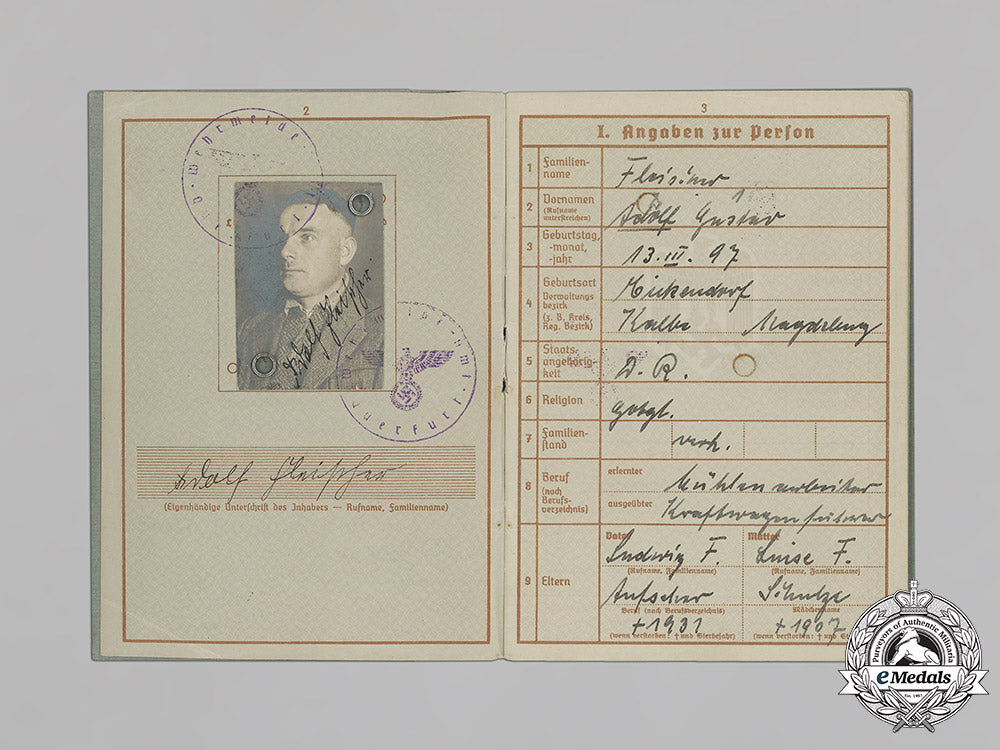 2
Wehrmelde
Querfurt
Adolf Fleischer
Adolf Fleischer
(Eigenhändige Unterschrift des Inhabers — Rufname, Familienname)
3
I. Angaben zur Person
1 Familien-
name
Fleischer
2 Vornamen
(Rufname
unterstreichen)
Adolf Gustav
3 Geburtstag,
-monat,
-jahr
13. III. 97
4 Geburtsort
Verwaltungs
bezirk
(z. B. Kreis,
Reg. Bezirk)
Kalbe Magdeburg
5 Staats-
angehörig-
keit
D. R.
6 Religion
gottgl.
7 Familien-
stand
verh.
8 Beruf
(nach
Berufs-
verzeichnis)
erlernter
Mühlenarbeiter
ausgeübter
Kraftwagenführer
9 Eltern
Vater Mutter
Ludwig F. Luise F.
(Rufname, Familienname) (Rufname, Familienname)
Aufseher Schulze
Beruf (nach Berufsverzeichnis) Mädchenname
+ 1931 + 1907
(wenn verstorben: † und Sterbejahr) (wenn verstorben: † und
Purveyors of Authentic Militaria
eMedals